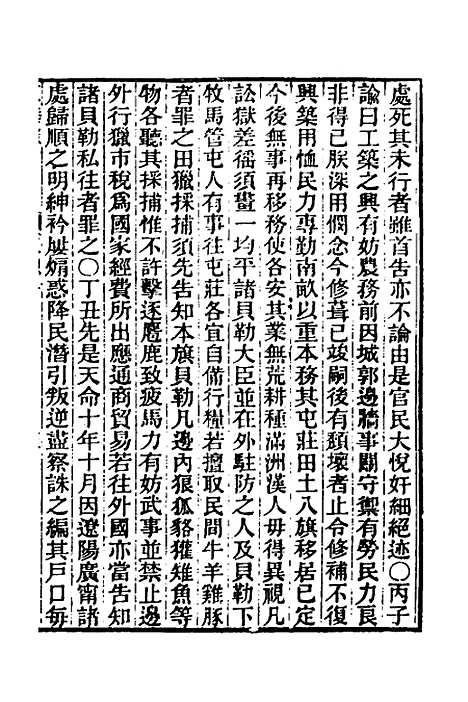 處死其未行者雖首告亦不論由是官民大悅奸細絕迹〇丙子
諭曰工築之興有妨農務前因城郭邊牆事關守禦有勞民力良
非得已朕深用憫念今修葺已竣嗣後有頹壞者止令修補不復
興築用恤民力專勤南畝以重本務其屯莊田土八旗移居已定
今後無事再移務使各安其業無荒耕種滿洲漢人毋得異視凡
訟獄差徭須畫一均平諸貝勒大臣並在外駐防之人及貝勒下
牧馬管屯人有事往屯莊各宜自備行糧若擅取民間牛羊雞豚
者罪之田獵採捕須先告知本旗貝勒凡邊內狼狐貉獾雉魚等
物各聽其採捕惟不許擊逐麅鹿致疲馬力有妨武事並禁止邊
外行獵市稅為國家經費所出應通商貿易若往外國亦當告知
諸貝勒私往者罪之〇丁丑先是天命十年十月因遼陽廣甯諸
處歸順之明紳衿屢煽惑降民潛引叛逆盡察誅之編其戶口每